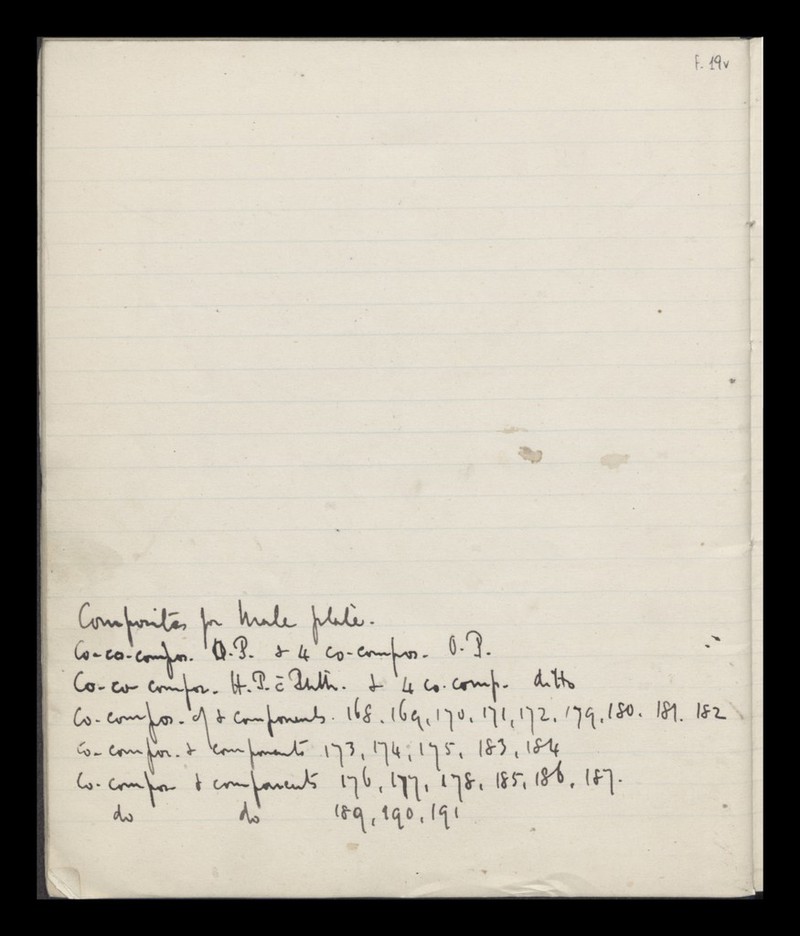 F. 19v
Composites for Male plate.
Co-co-compos. O.P. & 4 co-compos. O.P.
Co-co compos. H.P. c̄ Phth. & 4 co.comp. ditto
Co-compos. of & components. 168. 169, 170, 171, 172, 179, 180. 181. 182
Co-compos. & components 173, 174, 175, 183, 184
Co-compos & components 176, 177, 178, 185, 186, 187.
do do 189, 190, 191